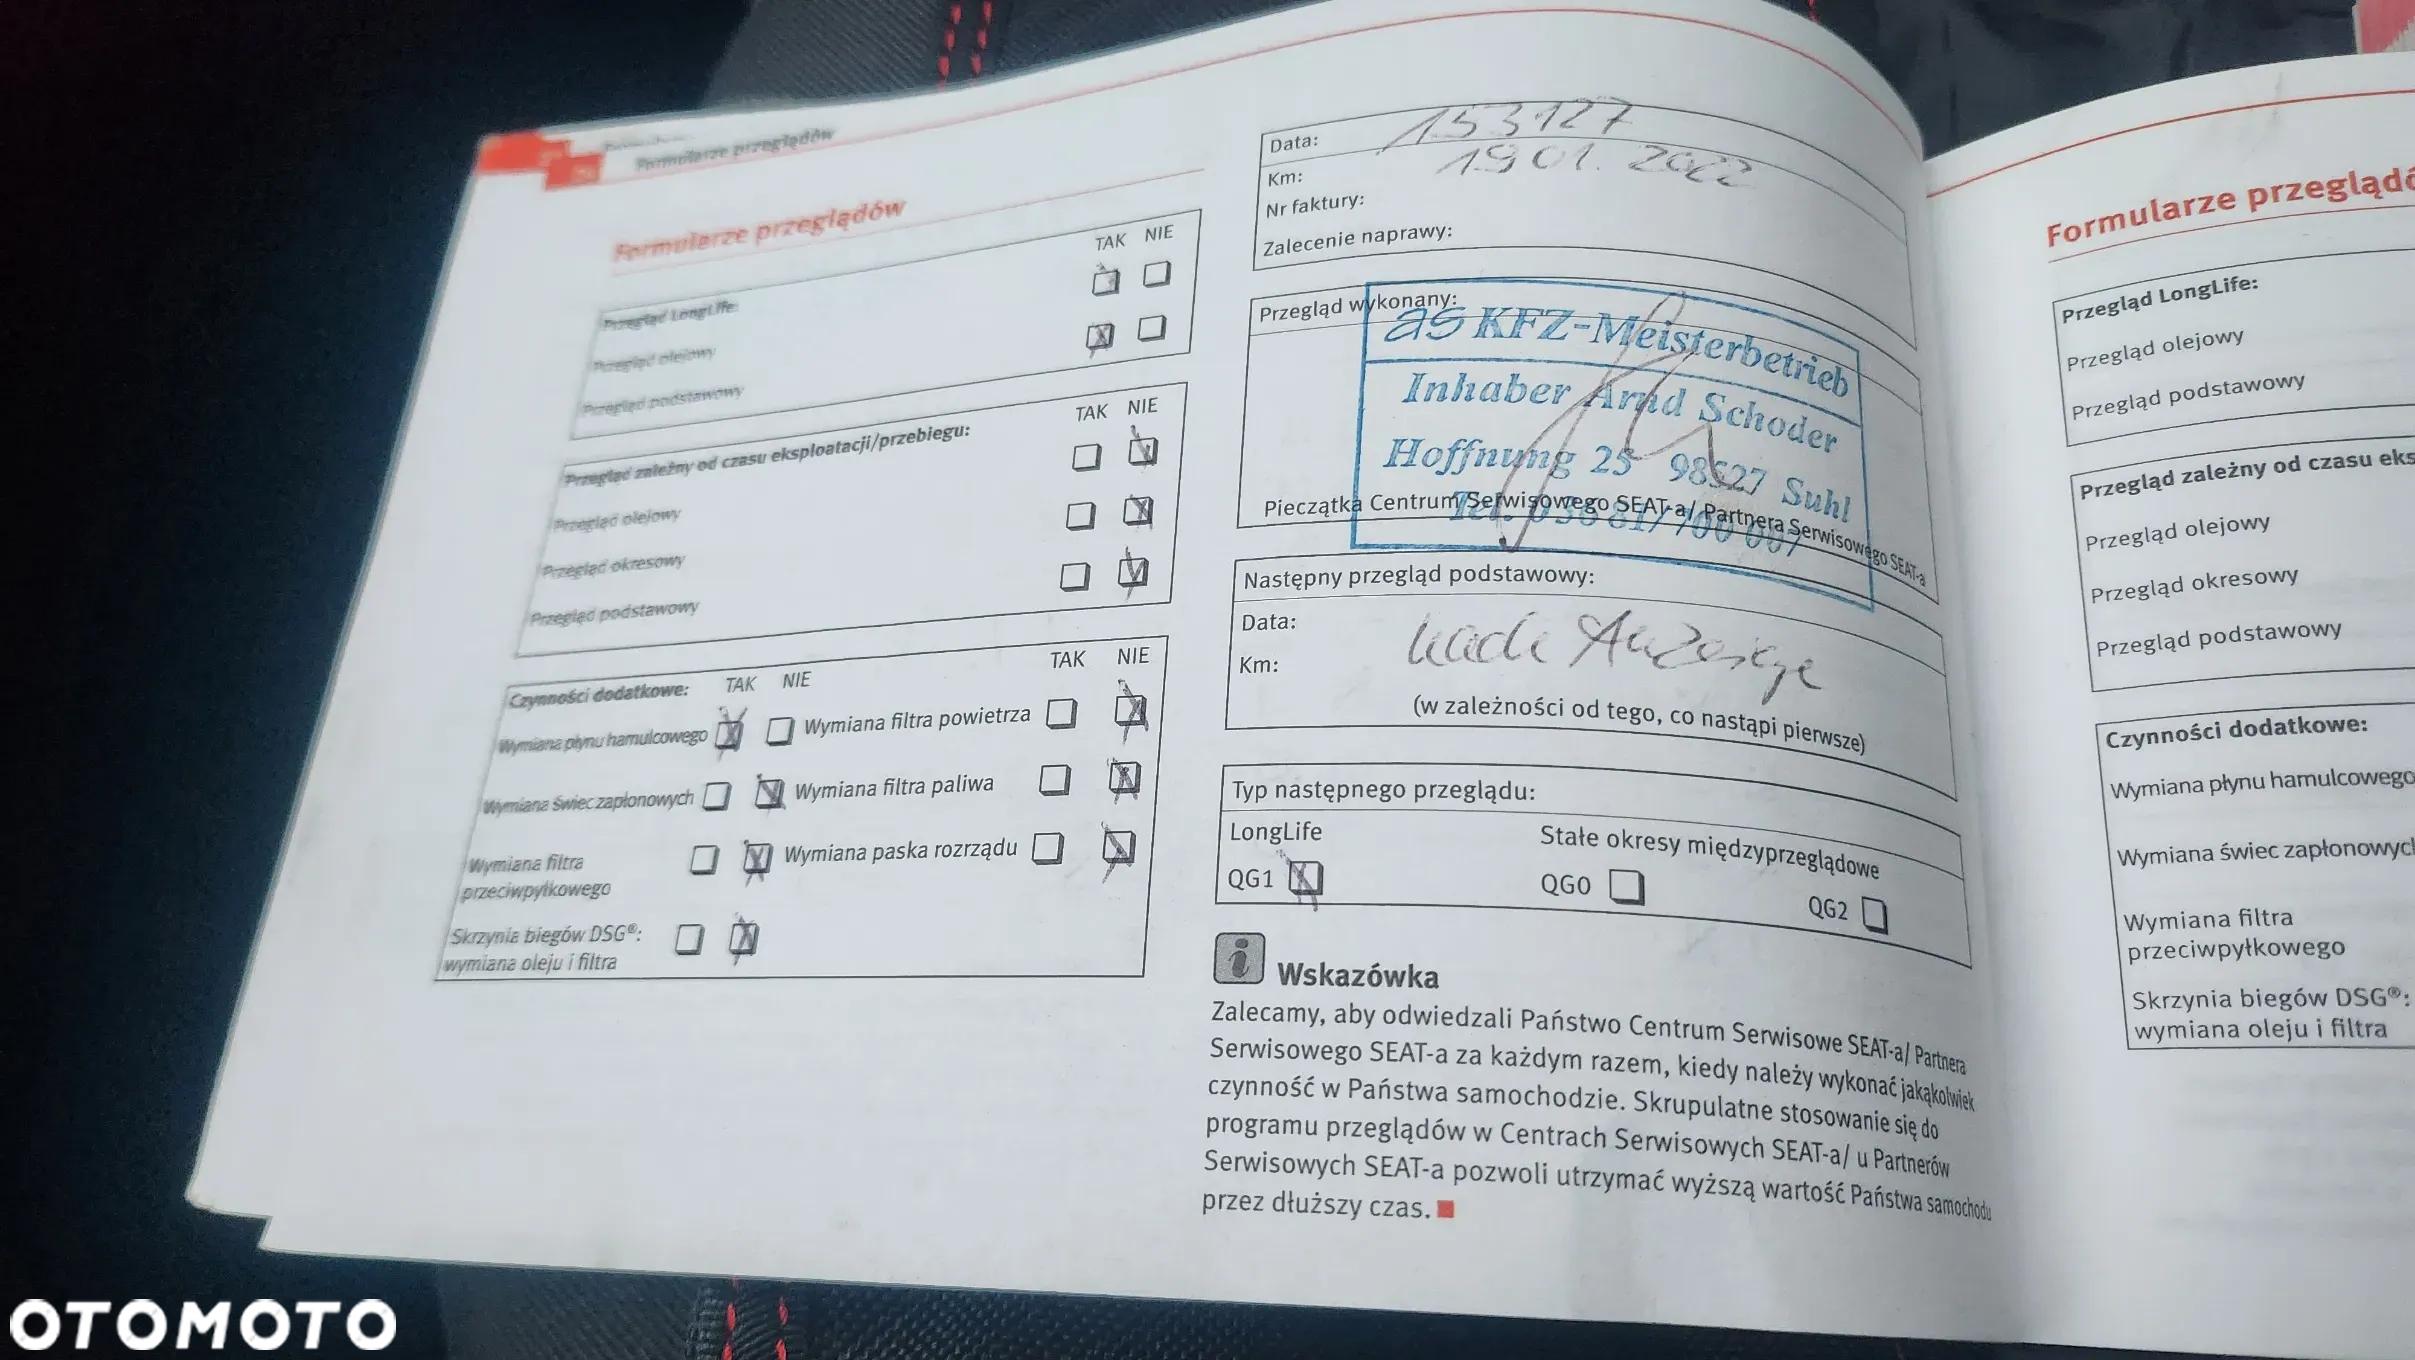 Formularze przeglądów
Formularze przeglądów
TAK NIE
Przegląd LongLife:
Przegląd olejowy
Przegląd podstawowy
TAK NIE
Przegląd zależny od czasu eksploatacji/przebiegu:
Przegląd olejowy
Przegląd okresowy
Przegląd podstawowy
TAK NIE
Czynności dodatkowe: TAK NIE
Wymiana płynu hamulcowego Wymiana filtra powietrza
Wymiana świec zapłonowych Wymiana filtra paliwa
Wymiana filtra Wymiana paska rozrządu
przeciwpyłkowego
Skrzynia biegów DSG®:
wymiana oleju i filtra
Data: 153127
Km: 19 01. 2022
Nr faktury:
Zalecenie naprawy:
Przegląd wykonany:
as KFZ-Meisterbetrieb
Inhaber Arnd Schoder
Hoffnung 25 98527 Suhl
Tel. 03681/700 007
Pieczątka Centrum Serwisowego SEAT-a/ Partnera Serwisowego SEAT-a
Następny przegląd podstawowy:
Data:
Km: nach Anzeige
(w zależności od tego, co nastąpi pierwsze)
Typ następnego przeglądu:
LongLife Stałe okresy międzyprzeglądowe
QG1 QG0 QG2
i Wskazówka
Zalecamy, aby odwiedzali Państwo Centrum Serwisowe SEAT-a/ Partnera
Serwisowego SEAT-a za każdym razem, kiedy należy wykonać jakąkolwiek
czynność w Państwa samochodzie. Skrupulatne stosowanie się do
programu przeglądów w Centrach Serwisowych SEAT-a/ u Partnerów
Serwisowych SEAT-a pozwoli utrzymać wyższą wartość Państwa samochodu
przez dłuższy czas.
Formularze przeglądó
Przegląd LongLife:
Przegląd olejowy
Przegląd podstawowy
Przegląd zależny od czasu eks
Przegląd olejowy
Przegląd okresowy
Przegląd podstawowy
Czynności dodatkowe:
Wymiana płynu hamulcowego
Wymiana świec zapłonowych
Wymiana filtra
przeciwpyłkowego
Skrzynia biegów DSG®:
wymiana oleju i filtra
OTOMOTO